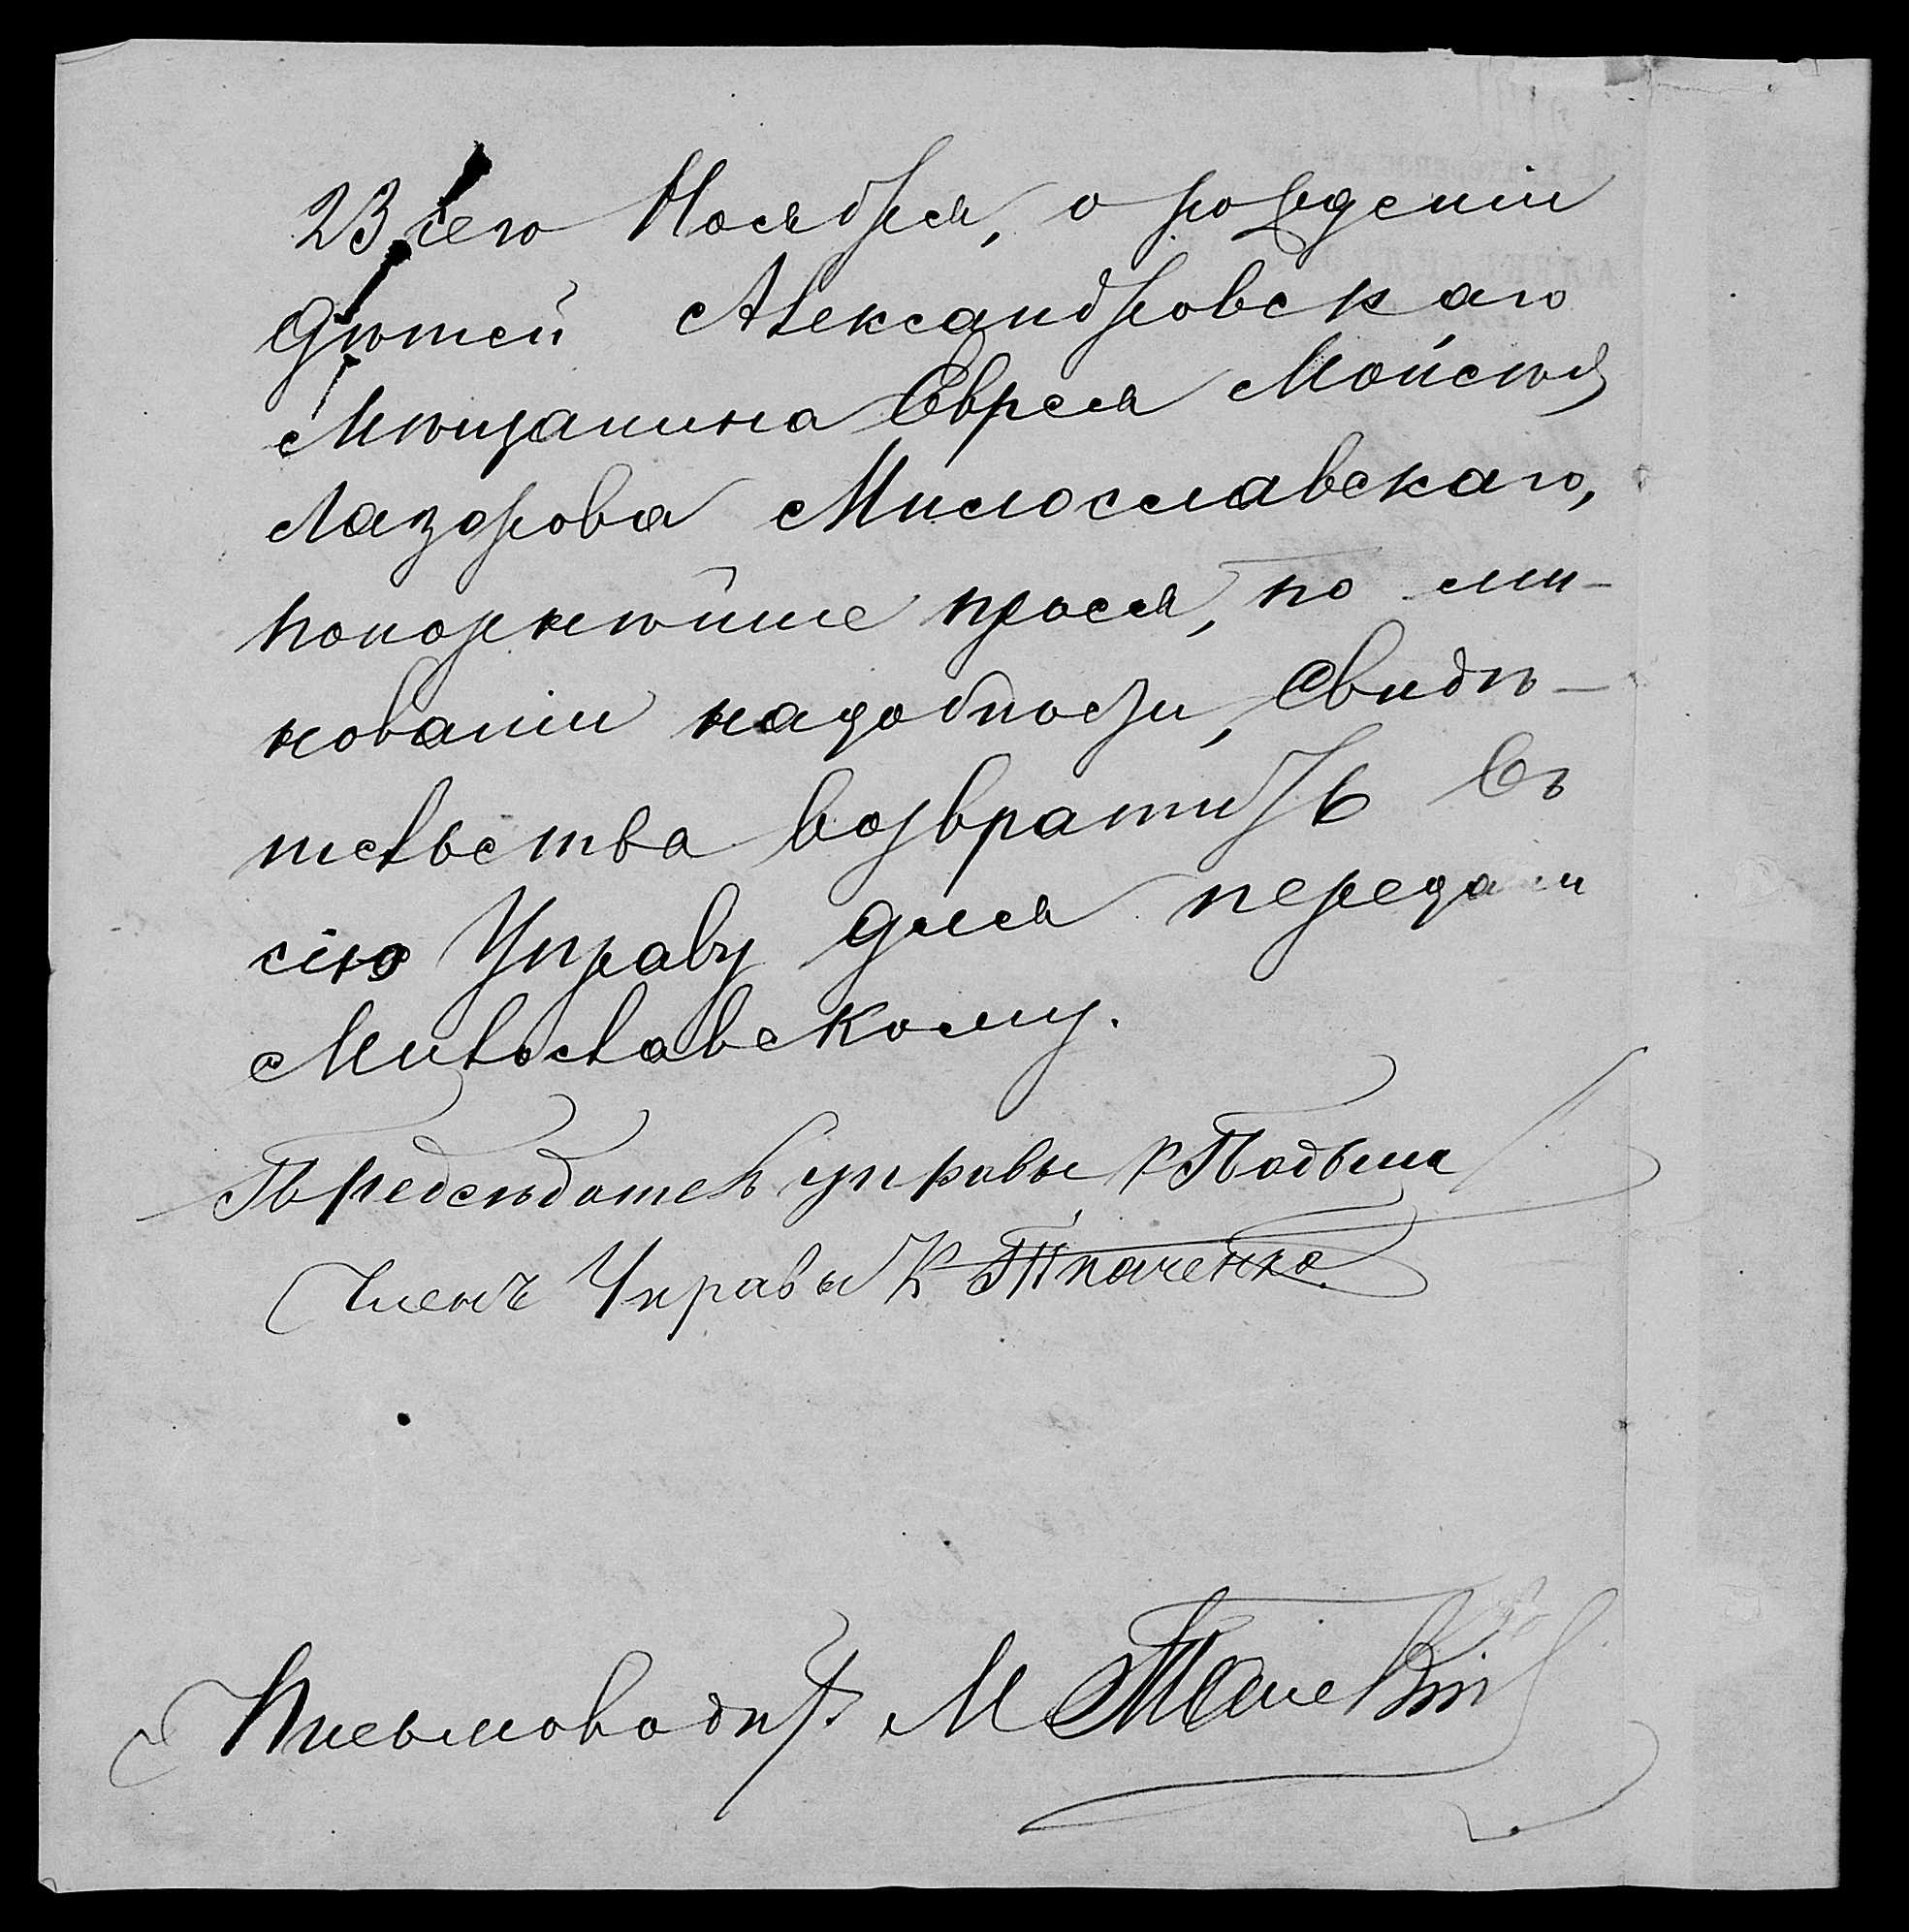 23 сего Ноября, о рождении
дѣтей Александровскаго
Мѣщанина Еврея Мойсѣя
Лазорова Милославскаго,
покорнѣйше прося, по ми-
нованіи надобности, Свидѣ-
тельства возвратить въ
сію Управу для передачи
Милославскому.
Предсѣдатель управы К
Членъ Управы К Ткаченко
Письмоводит. М